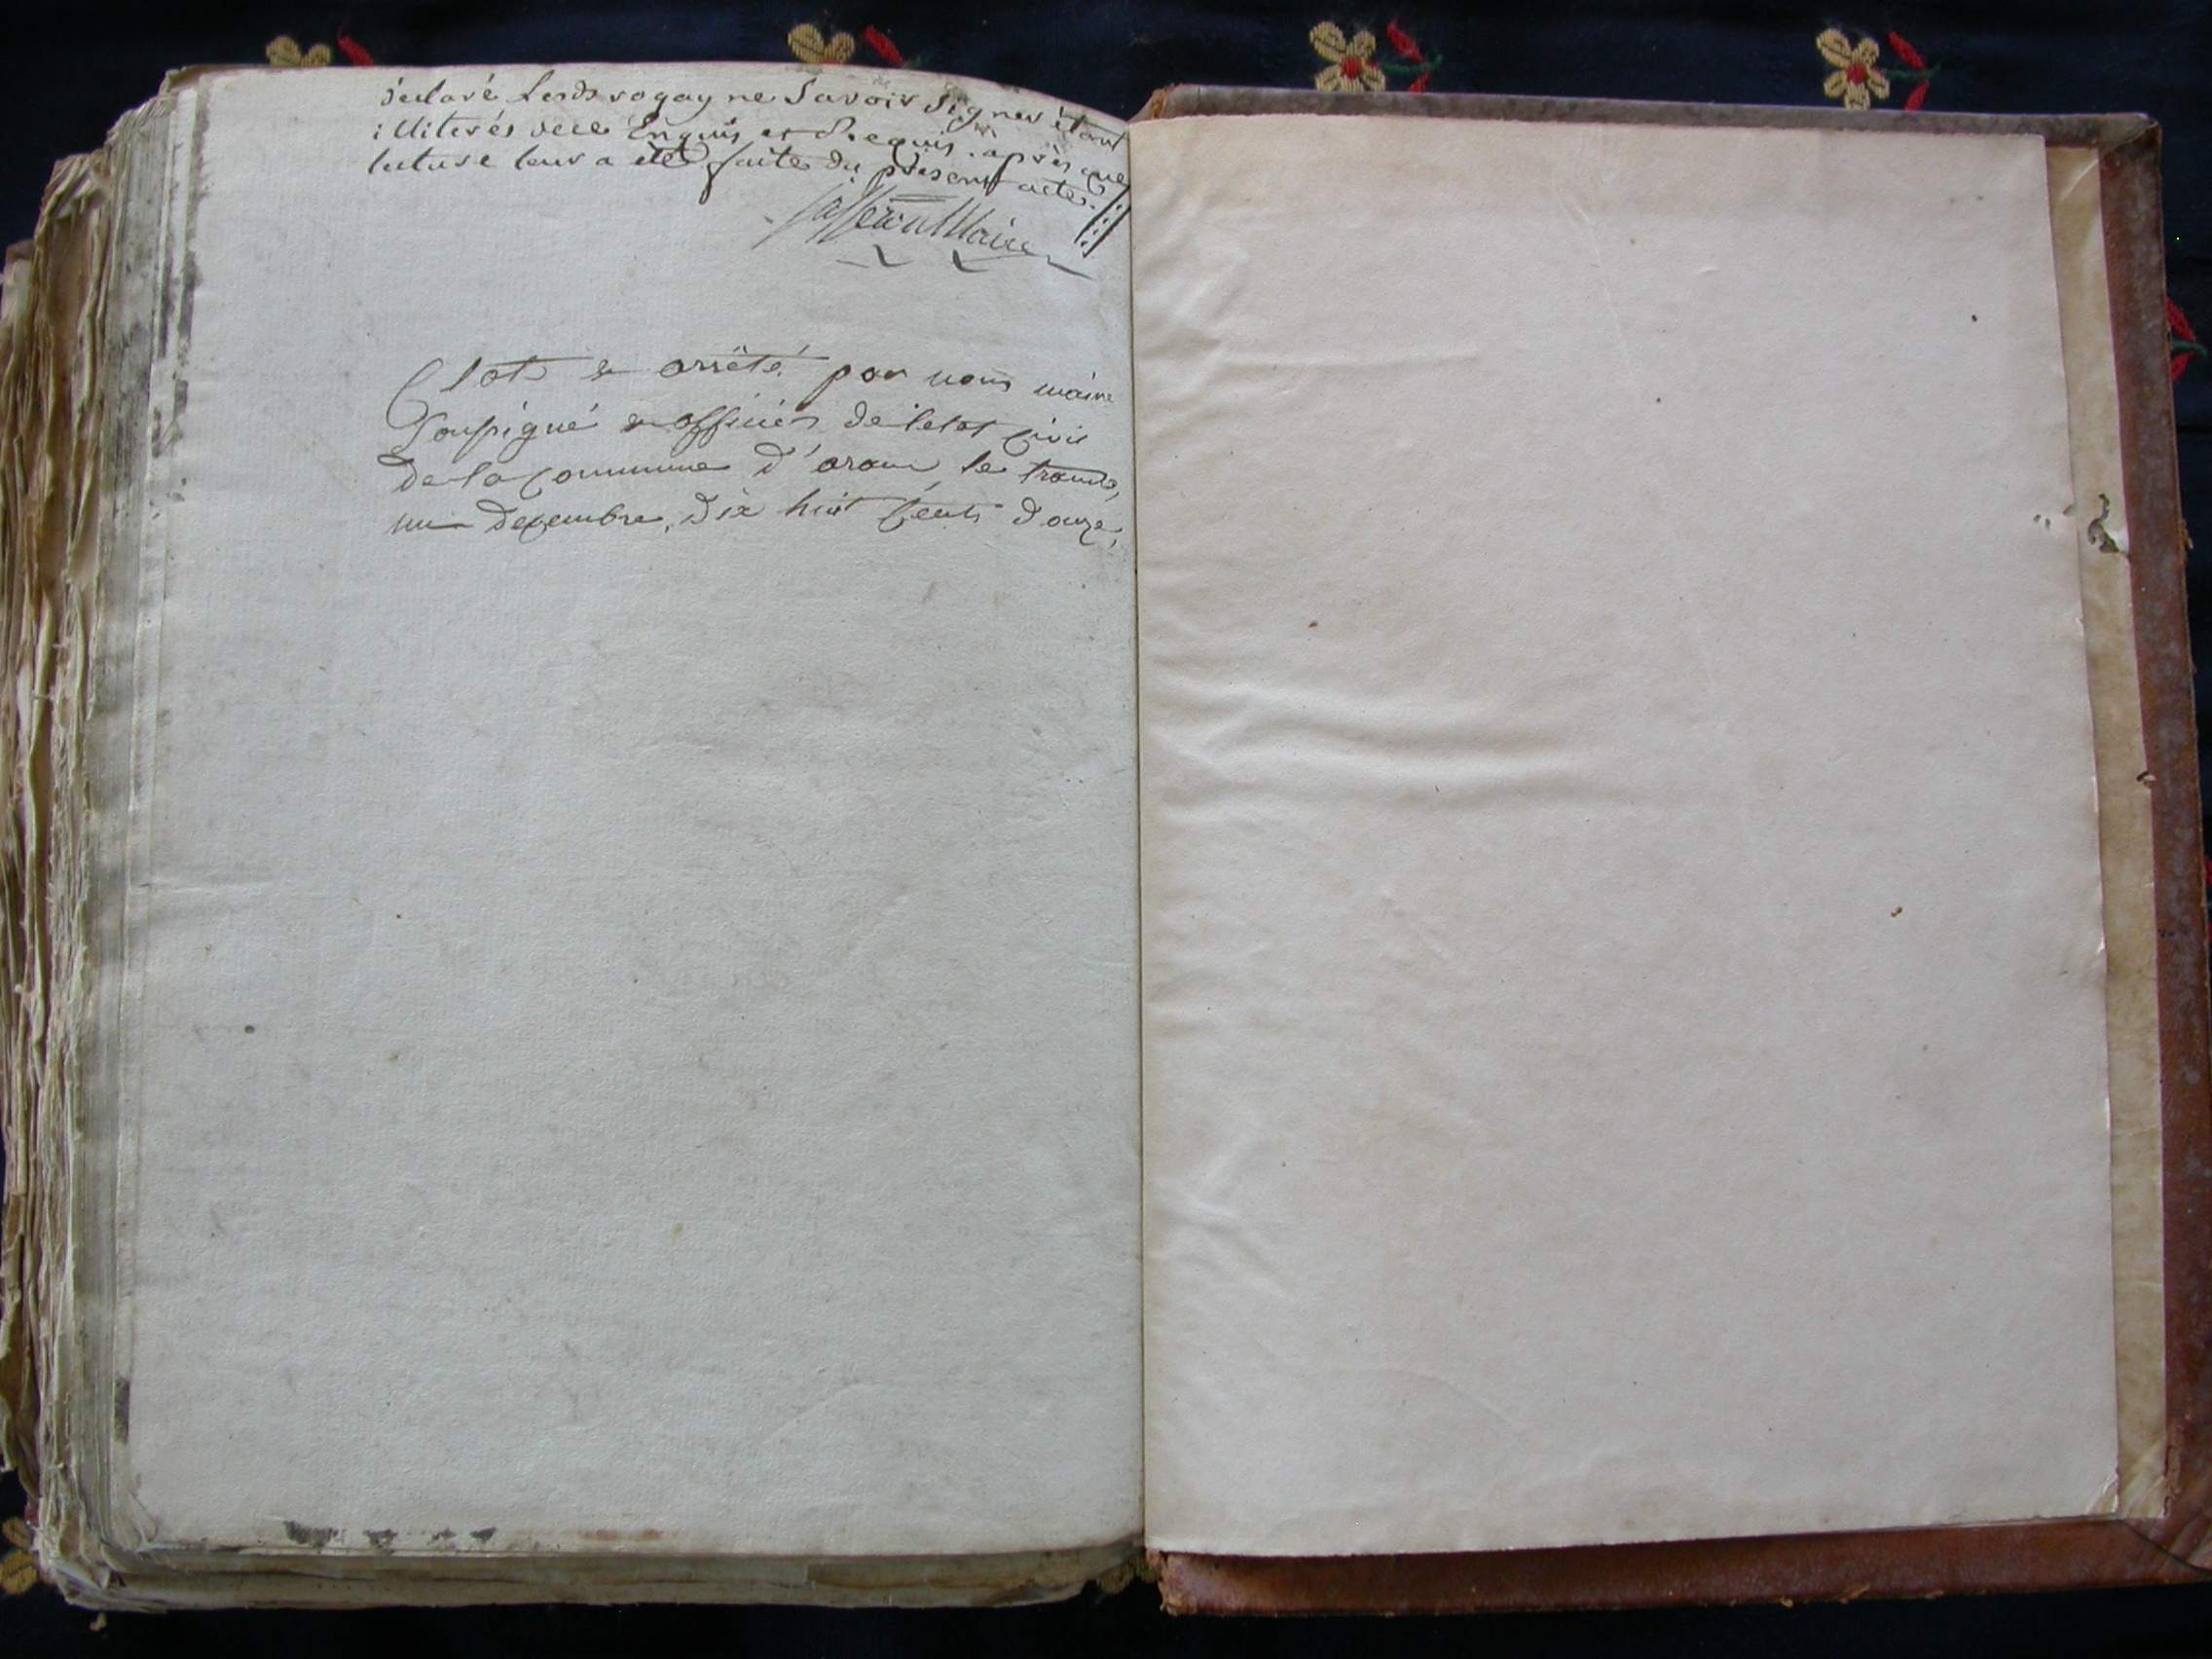 déclaré Lesds rogay ne Savoir Signer étant
illiterés de ce Enquis et Requis. après que
lecture leur a été faite du présent acte.
Maire
Clots & arrêté par nous maire
Soussigné & officier de l'etat civil
de la commune d'araux le trante,
un Decembre, dix huit cents douze,